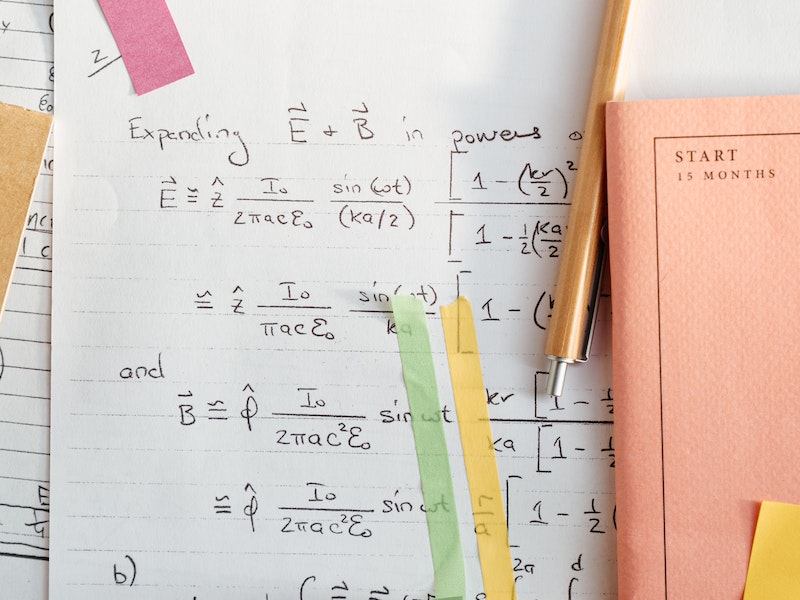 2
Expanding E⃗ + B⃗ in powers
E⃗ ≅ ẑ I₀/(2πacε₀) sin(ωt)/(ka/2) [1 - (kr/2)²
[1 - ½(ka/2
≅ ẑ I₀/(πacε₀) sin(ωt)/ka [1 - (
and
B⃗ ≅ φ̂ I₀/(2πac²ε₀) sin ωt kr/ka [1 - ½
[1 - ½
≅ φ̂ I₀/(2πac²ε₀) sin ωt r/a [1 - ½(
b)
2a d
START
15 MONTHS